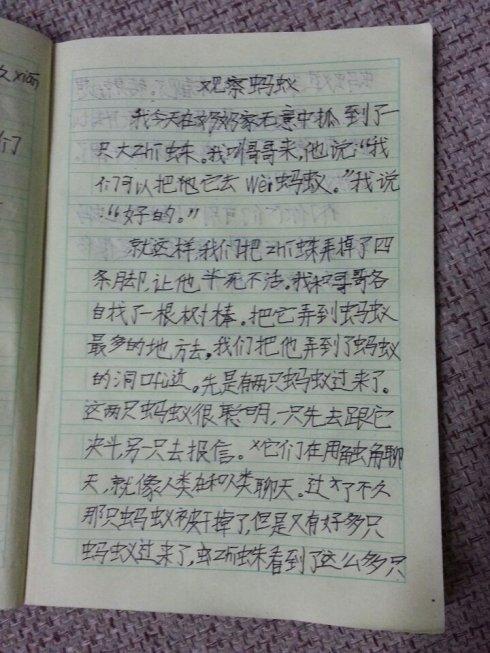 久xiān
们
观察蚂蚁
我今天在奶奶家无意中抓到了一
只大zhī蛛。我叫哥哥来,他说:“我
们可以把他它去wèi蚂蚁。”我说
:“好的。”
就这样,我们把zhī蛛弄掉了四
条脚,让他半死不活。我和哥哥各
自找了一根树棒。把它弄到蚂蚁
最多的地方去。我们把他弄到了蚂蚁
的洞口附近。先是有两只蚂蚁过来了。
这两只蚂蚁很聪明,一只先去跟它
决斗,另只去报信。它们在用触角聊
天,就像人类在和人类聊天。过了不久
那只蚂蚁被干掉了,但是又有好多只
蚂蚁过来了,zhī蛛看到了这么多只